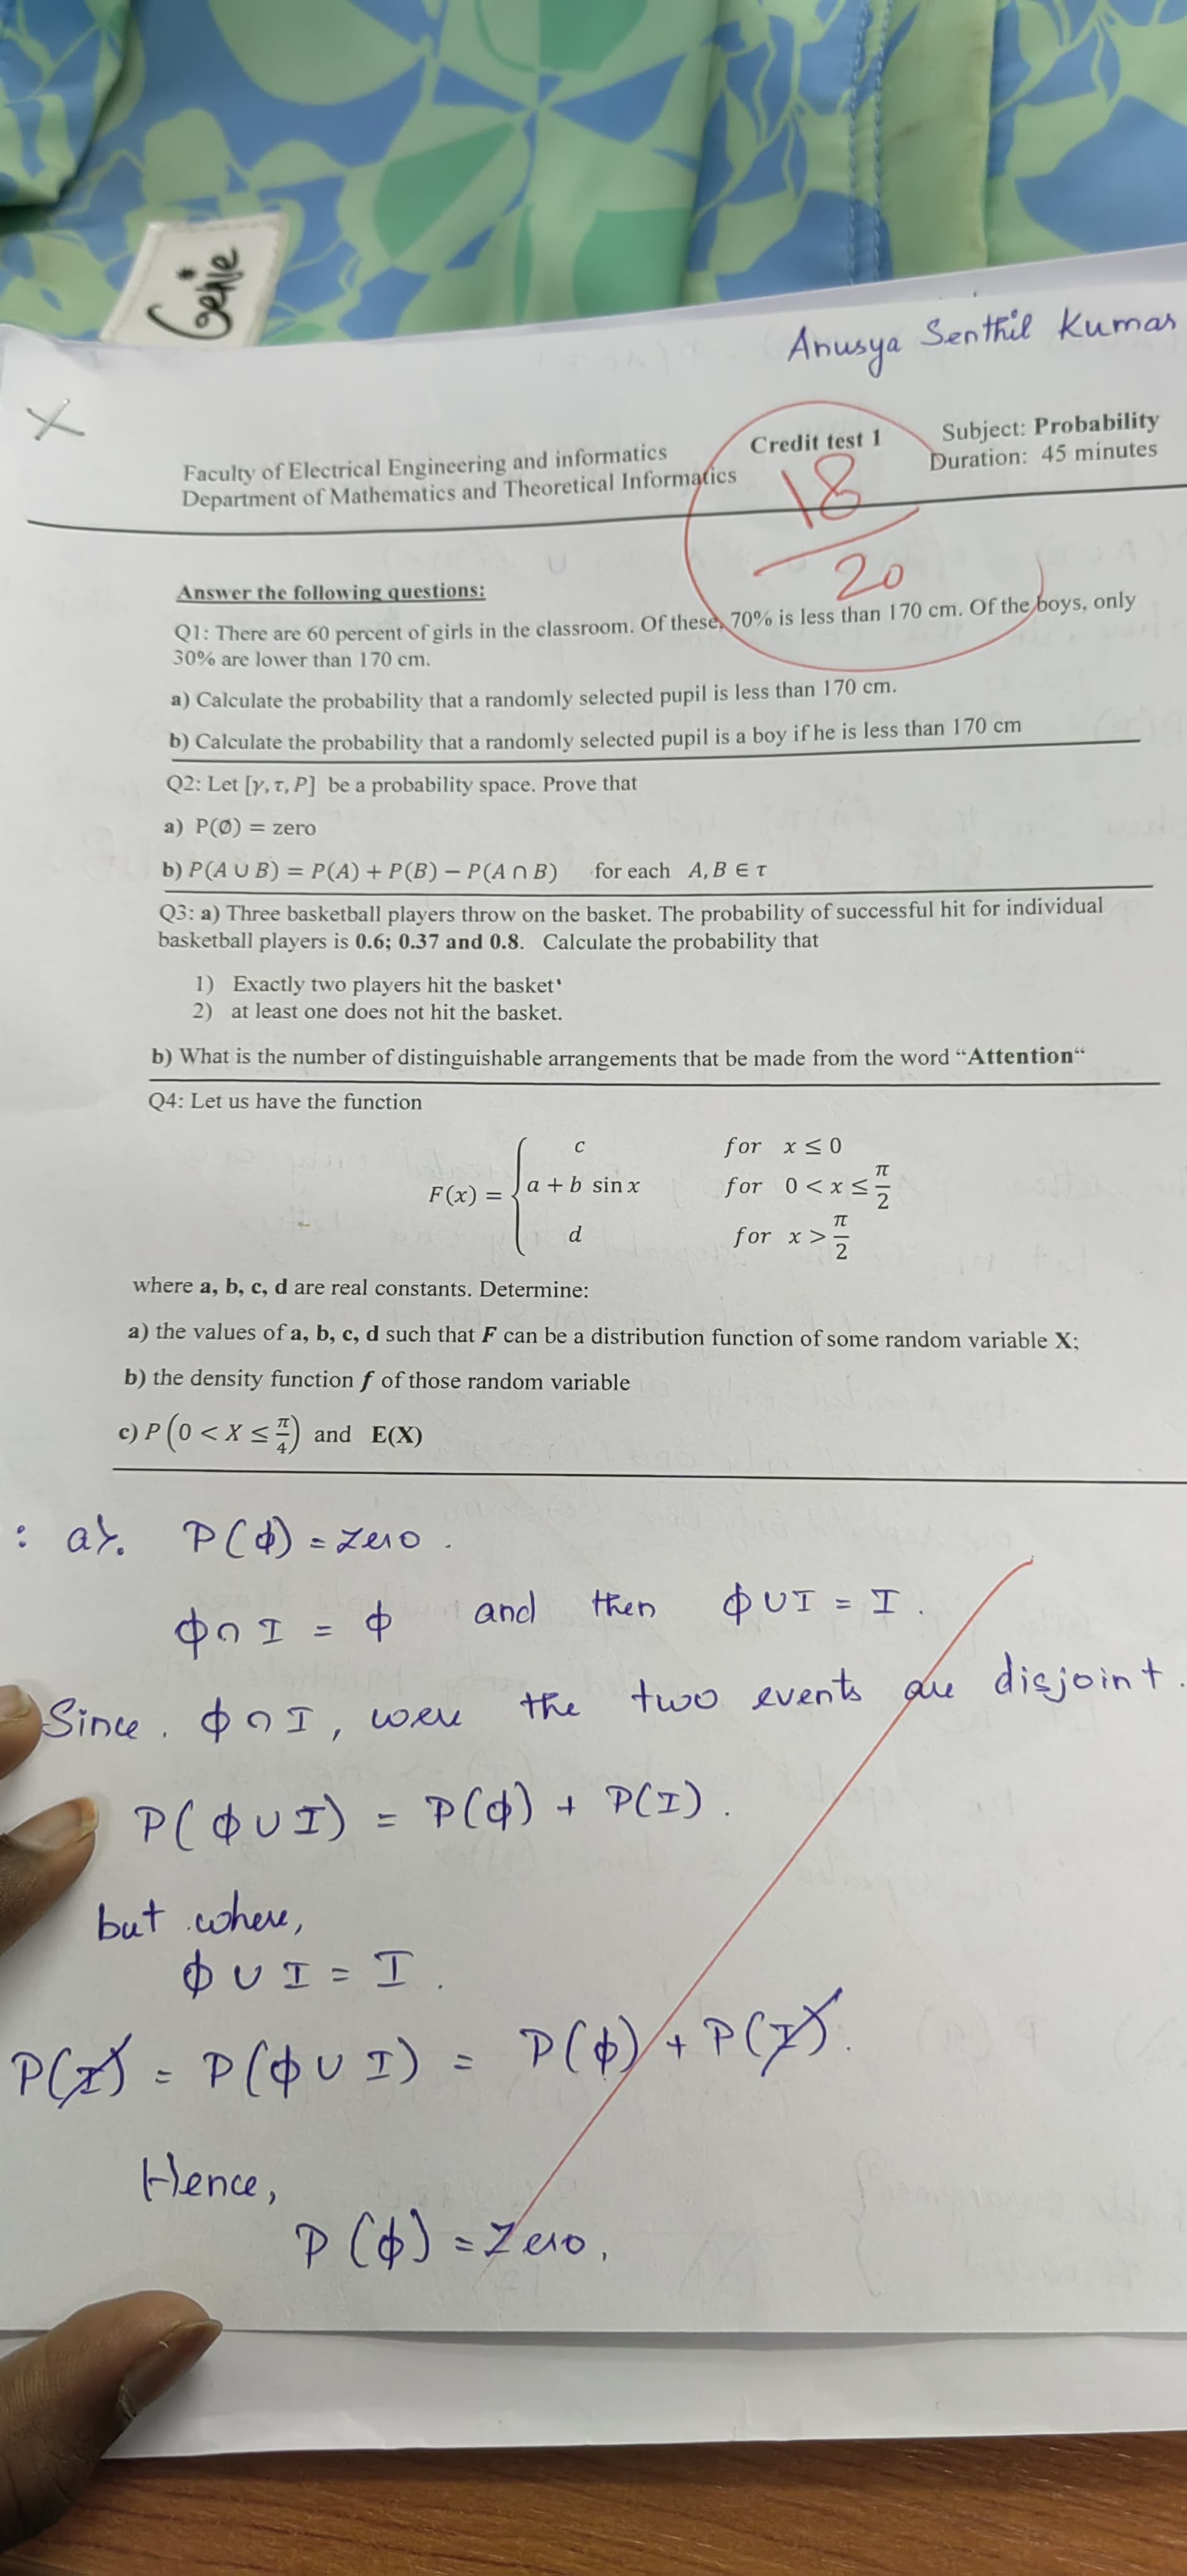 Genie
Anusya Senthil Kumar
X
Faculty of Electrical Engineering and informatics
Department of Mathematics and Theoretical Informatics
Credit test 1
Subject: Probability
Duration: 45 minutes
18
20
Answer the following questions:
Q1: There are 60 percent of girls in the classroom. Of these, 70% is less than 170 cm. Of the boys, only
30% are lower than 170 cm.
a) Calculate the probability that a randomly selected pupil is less than 170 cm.
b) Calculate the probability that a randomly selected pupil is a boy if he is less than 170 cm
Q2: Let [γ, τ, P] be a probability space. Prove that
a) P(Ø) = zero
b) P(A ∪ B) = P(A) + P(B) − P(A ∩ B) for each A, B ∈ τ
Q3: a) Three basketball players throw on the basket. The probability of successful hit for individual
basketball players is 0.6; 0.37 and 0.8. Calculate the probability that
1) Exactly two players hit the basket
2) at least one does not hit the basket.
b) What is the number of distinguishable arrangements that be made from the word “Attention“
Q4: Let us have the function
c for x ≤ 0
F(x) = { a + b sin x for 0 < x ≤ π/2
d for x > π/2
where a, b, c, d are real constants. Determine:
a) the values of a, b, c, d such that F can be a distribution function of some random variable X;
b) the density function f of those random variable
c) P(0 < X ≤ π/4) and E(X)
: a). P(ϕ) = zero.
ϕ ∩ I = ϕ and then ϕ ∪ I = I.
Since. ϕ ∩ I, were the two events are disjoint.
P(ϕ ∪ I) = P(ϕ) + P(I).
but where,
ϕ ∪ I = I.
P(I) = P(ϕ ∪ I) = P(ϕ) + P(I).
Hence,
P(ϕ) = zero.